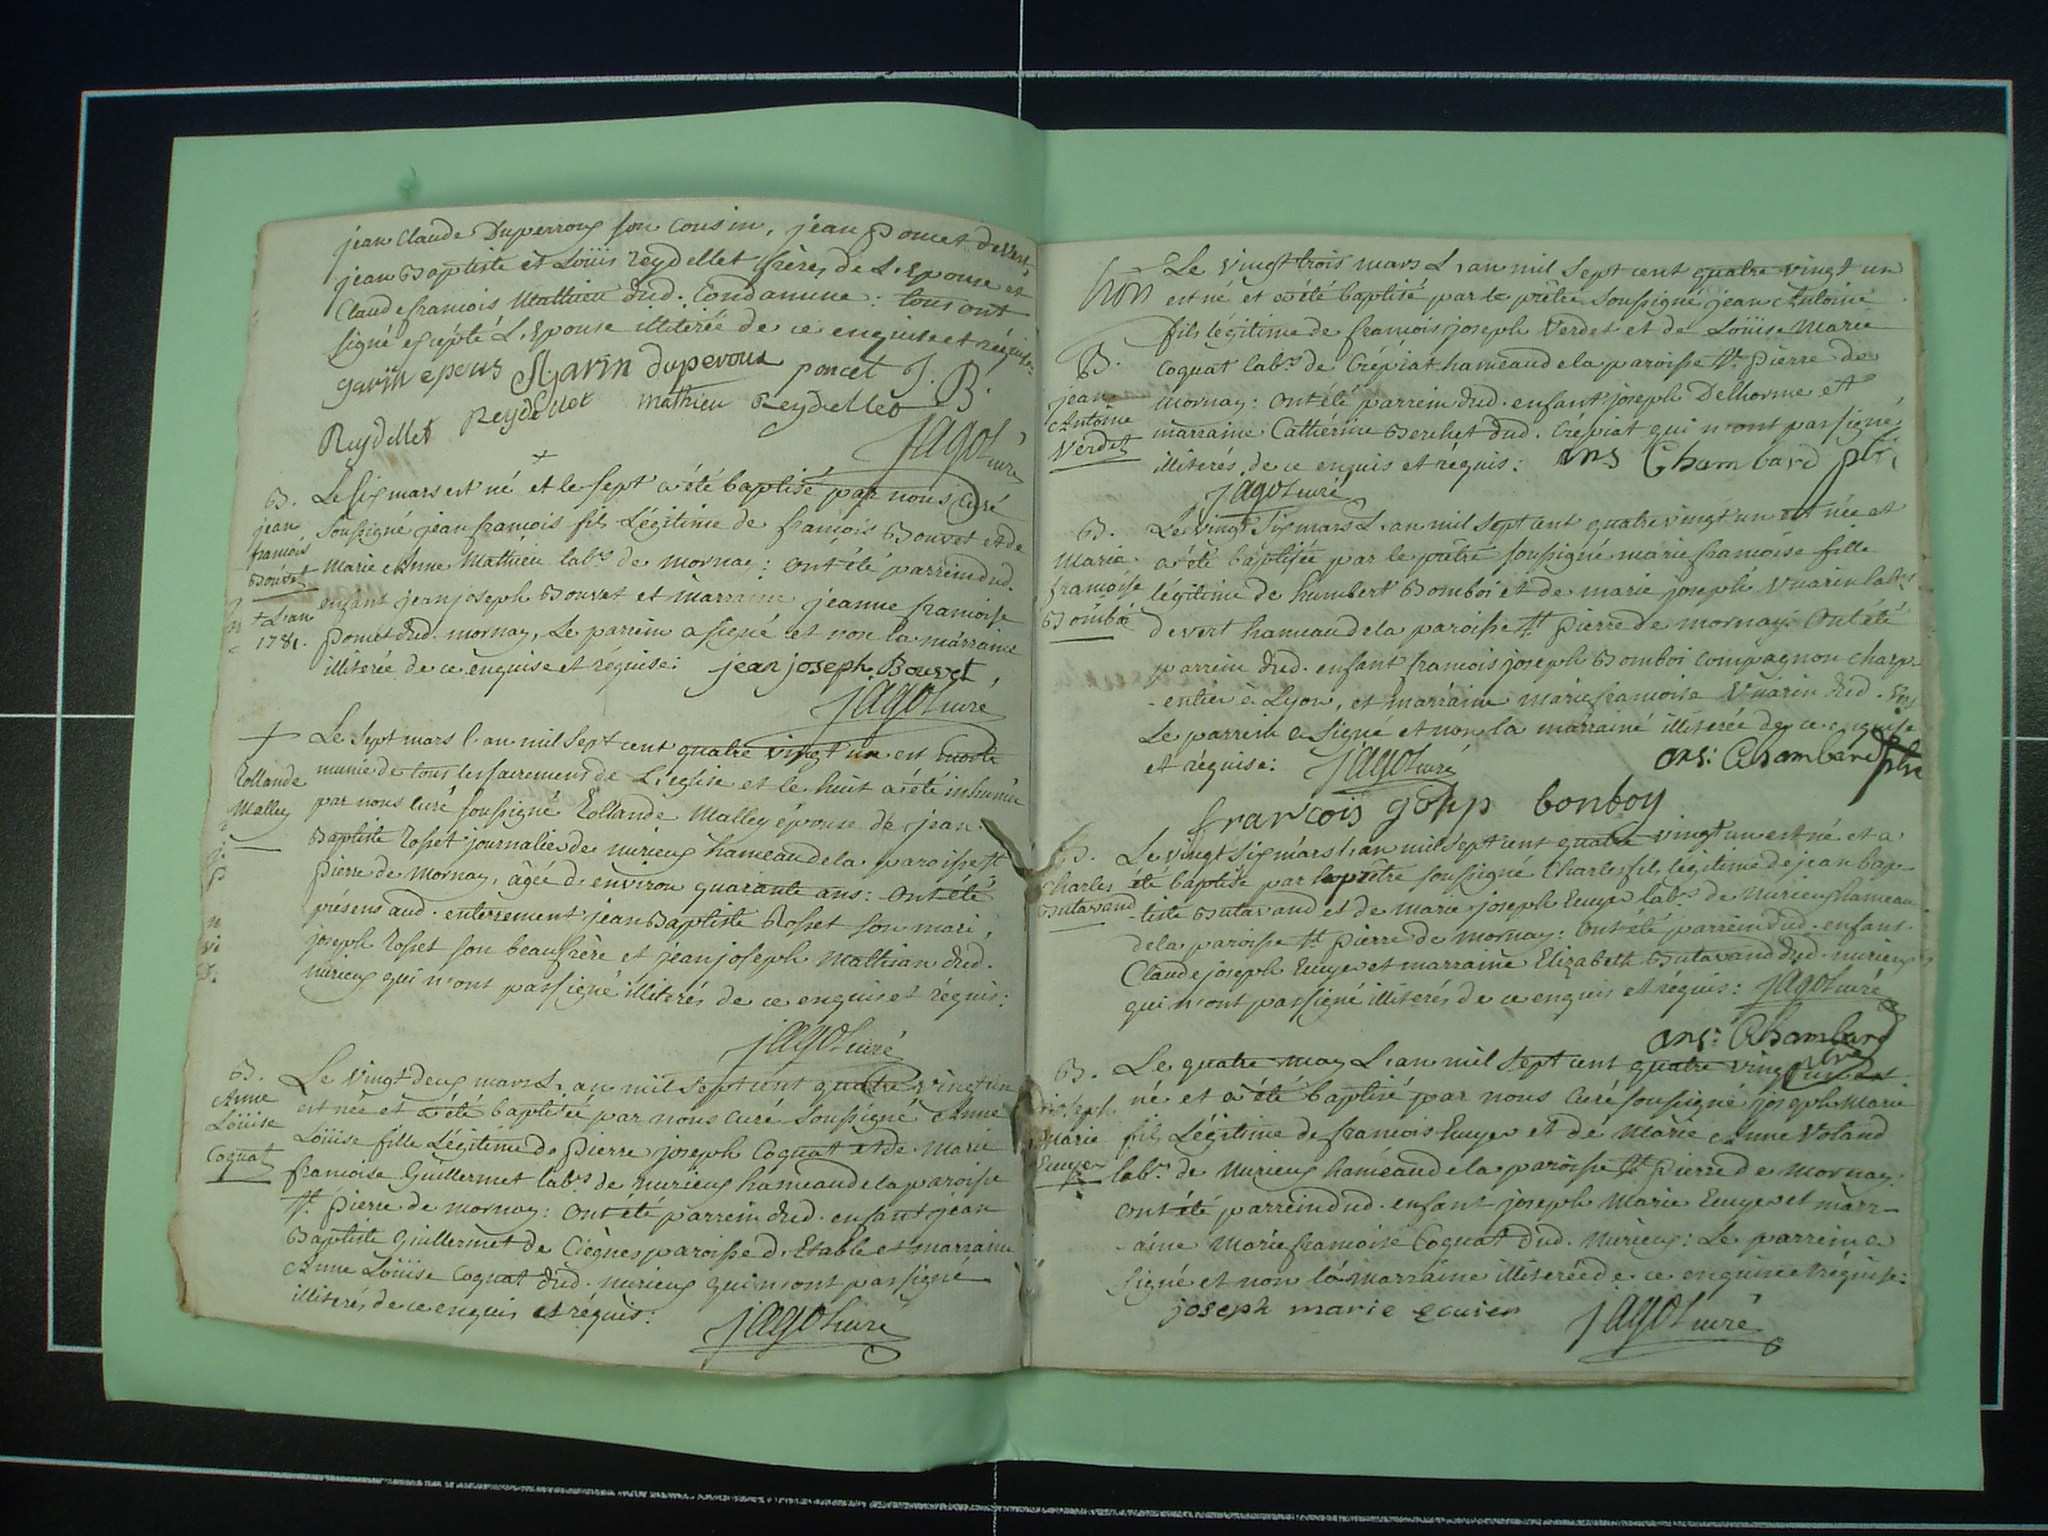 jean Claude Duperroux son cousin, jean poncet de Vert,
jean Baptiste et Loüis Reydellet frères de L'Epouse et
Claude francois Mathieu dud. Condamine: tous ont
signé excépté L'Epouse illiterée de ce enquise et réquise
garin epous Garin duperoux poncet J. B.
Reydellet Reydellet mathieu Reydellet
jagot curé
B.
jean
francois
Bouvet
+ L'an
1781.
Le six mars est né et le sept a été baptisé par nous curé
soussigné jean francois fils Légitime de francois Bouvet et de
Marie Anne Mathieu labrs de mornay: ont été parrein dud.
enfant jean joseph Bouvet et marraine jeanne francoise
poncet dud. mornay, Le parrein a signé et non la marraine
illiterée de ce enquise et réquise: jean joseph Bouvet,
jagot curé
+
Rollande
Malley
Le sept mars l'an mil sept cent quatre vingt un est morte
munie de tous les sacremens de L'église et le huit a été inhumée
par nous curé soussigné Rollande Malley épouse de jean
Baptiste Rosset journalier de nurieux hameau de la paroisse St
pierre de Mornay, âgée d'environ quarante ans: ont été
présens aud. enterrement jean Baptiste Rosset son mari,
joseph Rosset son beaufrère et jean joseph Mathian dud.
nurieux qui n'ont pas signé illiterés de ce enquis et réquis:
jagot curé
B.
Anne
Loüise
Coquat
Le vingt deux mars L'an mil sept cent quatre vingt un
est née et a été baptisée par nous curé soussigné Anne
Loüise fille Légitime de pierre joseph Coquat et de Marie
francoise Guillermet labrs de nurieux hameau de la paroisse
St pierre de mornay: ont été parrein dud. enfant jean
Baptiste Guillermet de Ciègnes paroisse d'Etable et marraine
Anne Loüise Coquat dud. nurieux qui n'ont pas signé
illiterés de ce enquis et réquis:
jagot curé
Le vingt trois mars L'an mil sept cent quatre vingt un
est né et a été baptisé par le prêtre soussigné jean Antoine
fils légitime de francois joseph Verdet et de Loüise Marie
B.
jean
Antoine
Verdet
Coquat labrs de Crépiat hameau de la paroisse St pierre de
mornay: ont été parrein dud. enfant joseph Delhorme et
marraine Catherine Berchet dud. Crépiat qui n'ont pas signé
illiterés de ce enquis et réquis: ans Chambard ptre
jagot curé
B.
Marie
francoise
Bomboi
Le vingt six mars L'an mil sept cent quatre vingt un est née et
a été baptisée par le prêtre soussigné marie francoise fille
légitime de humbert Bomboi et de marie joseph Vuarin labrs
de vert hameau de la paroisse St pierre de mornay: ont été
parrein dud. enfant francois joseph Bomboi compagnon charp-
-entier à Lyon, et marraine marie francoise Vuarin dud. Very
Le parrein a signé et non la marraine illiterée de ce enquise
et réquise: jagot curé ans: Chambard ptre
francois gohp bonboy
B.
Charles
Butavand
Le vingt six mars l'an mil sept cent quatre vingt un est né et a
été baptisé par le prêtre soussigné Charles fils légitime de jean bap-
-tiste Butavand et de Marie joseph Ecuyer labrs de nurieux hameau
de la paroisse St pierre de mornay: ont été parrein dud. enfant
Claude joseph Ecuyer et marraine Elizabeth Butavand dud. nurieux
qui n'ont pas signé illiterés de ce enquis et réquis: jagot curé
ans: Chambard
ptre
B.
joseph
Marie
Ecuyer
Le quatre may L'an mil sept cent quatre vingt un est
né et a été baptisé par nous curé soussigné joseph Marie
fils Légitime de francois Ecuyer et de Marie Anne Voland
labrs de nurieux hameau de la paroisse St pierre de mornay:
ont été parrein dud. enfant joseph Marie Ecuyer et marr-
-aine Marie francoise Coquat dud. nurieux: Le parrein a
signé et non la marraine illiterée de ce enquise et réquise:
joseph marie ecuier jagot curé